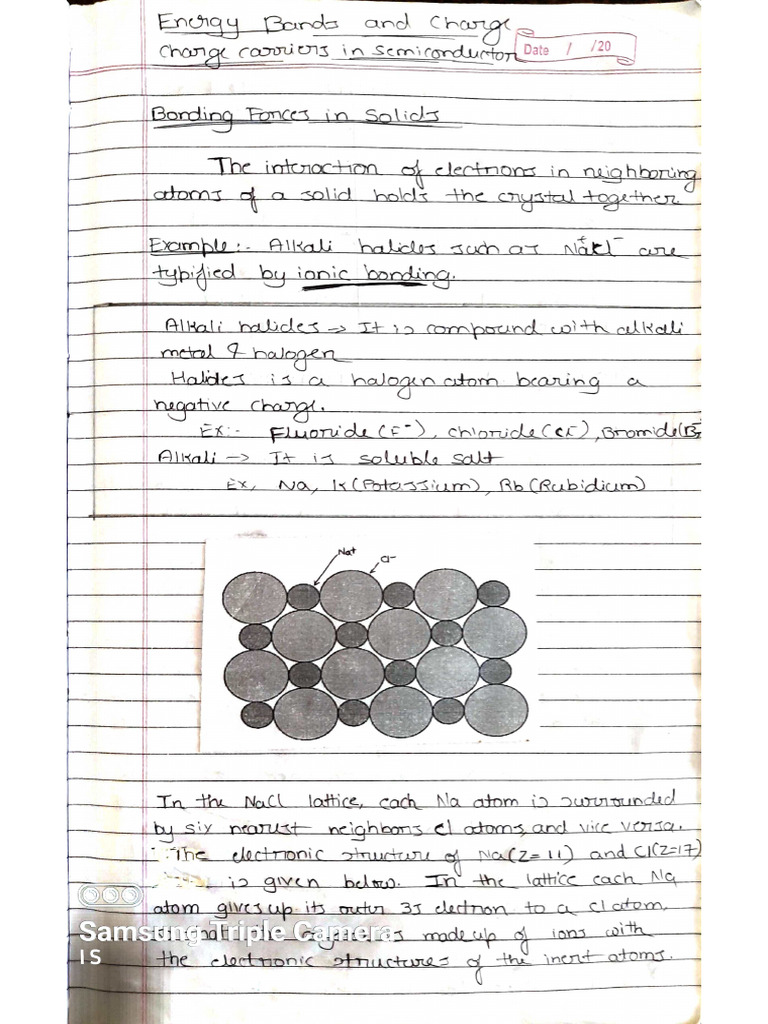 Energy Bands and Charge
charge carriers in semiconductor
Date / /20
Bonding Forces in Solids
The interaction of electrons in neighboring
atoms of a solid holds the crystal together
Example:- Alkali halides such as Na+Cl- are
typified by ionic bonding.
Alkali halides → It is compound with alkali
metal & halogen
Halides is a halogen atom bearing a
negative charge.
Ex:- Fluoride (F-), chloride (Cl-), Bromide (Br
Alkali → It is soluble salt
Ex, Na, K (Potassium), Rb (Rubidium)
Na+ Cl-
In the NaCl lattice, each Na atom is surrounded
by six nearest neighbors Cl atoms, and vice versa.
The electronic structure of Na (Z=11) and Cl (Z=17)
is given below. In the lattice each Na
atom gives up its outer 3s electron to a Cl atom,
is made up of ions with
the electronic structures of the inert atoms.
Samsung Triple Camera
IS